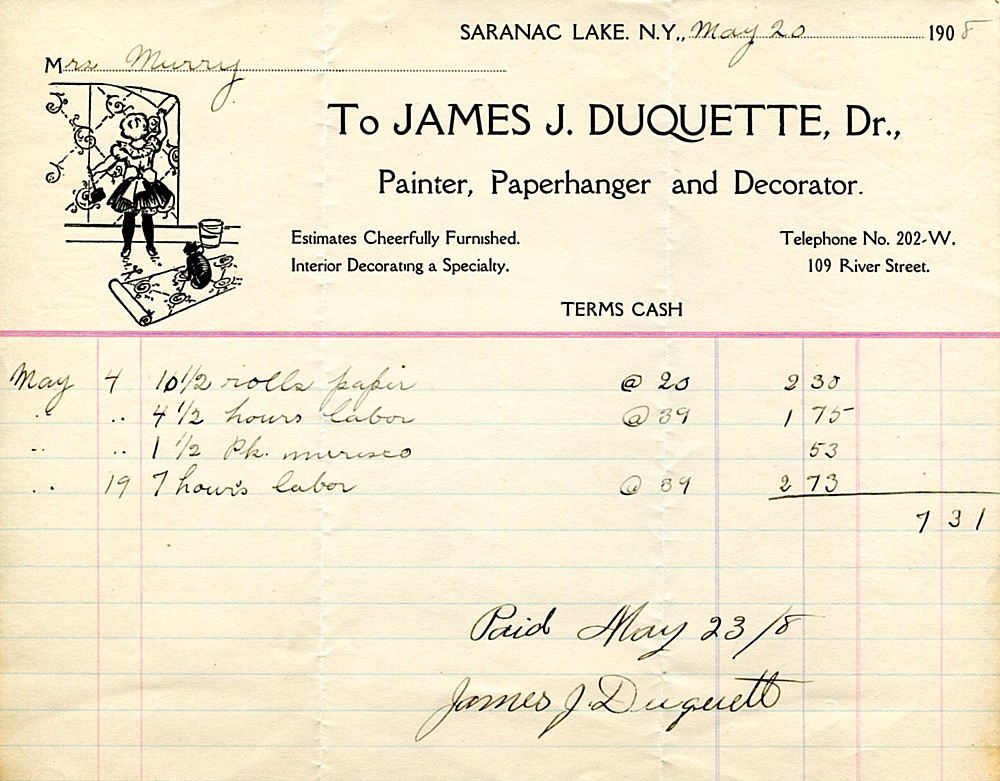 SARANAC LAKE. N.Y., May 20 1908
Mrs Murry
To JAMES J. DUQUETTE, Dr.,
Painter, Paperhanger and Decorator.
Estimates Cheerfully Furnished.
Telephone No. 202-W.
Interior Decorating a Specialty.
109 River Street.
TERMS CASH
May 4 1/2 rolls paper @ 20 2 30
" " 4 1/2 hours labor @ 39 1 75
" " 1 1/2 Pk. muresco 53
" 19 7 hours labor @ 39 2 73
7 31
Paid May 23/8
James J. Duquett